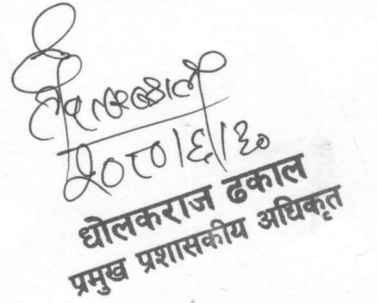 २०८०।६।३०
धोलकराज ढकाल
प्रमुख प्रशासकीय अधिकृत